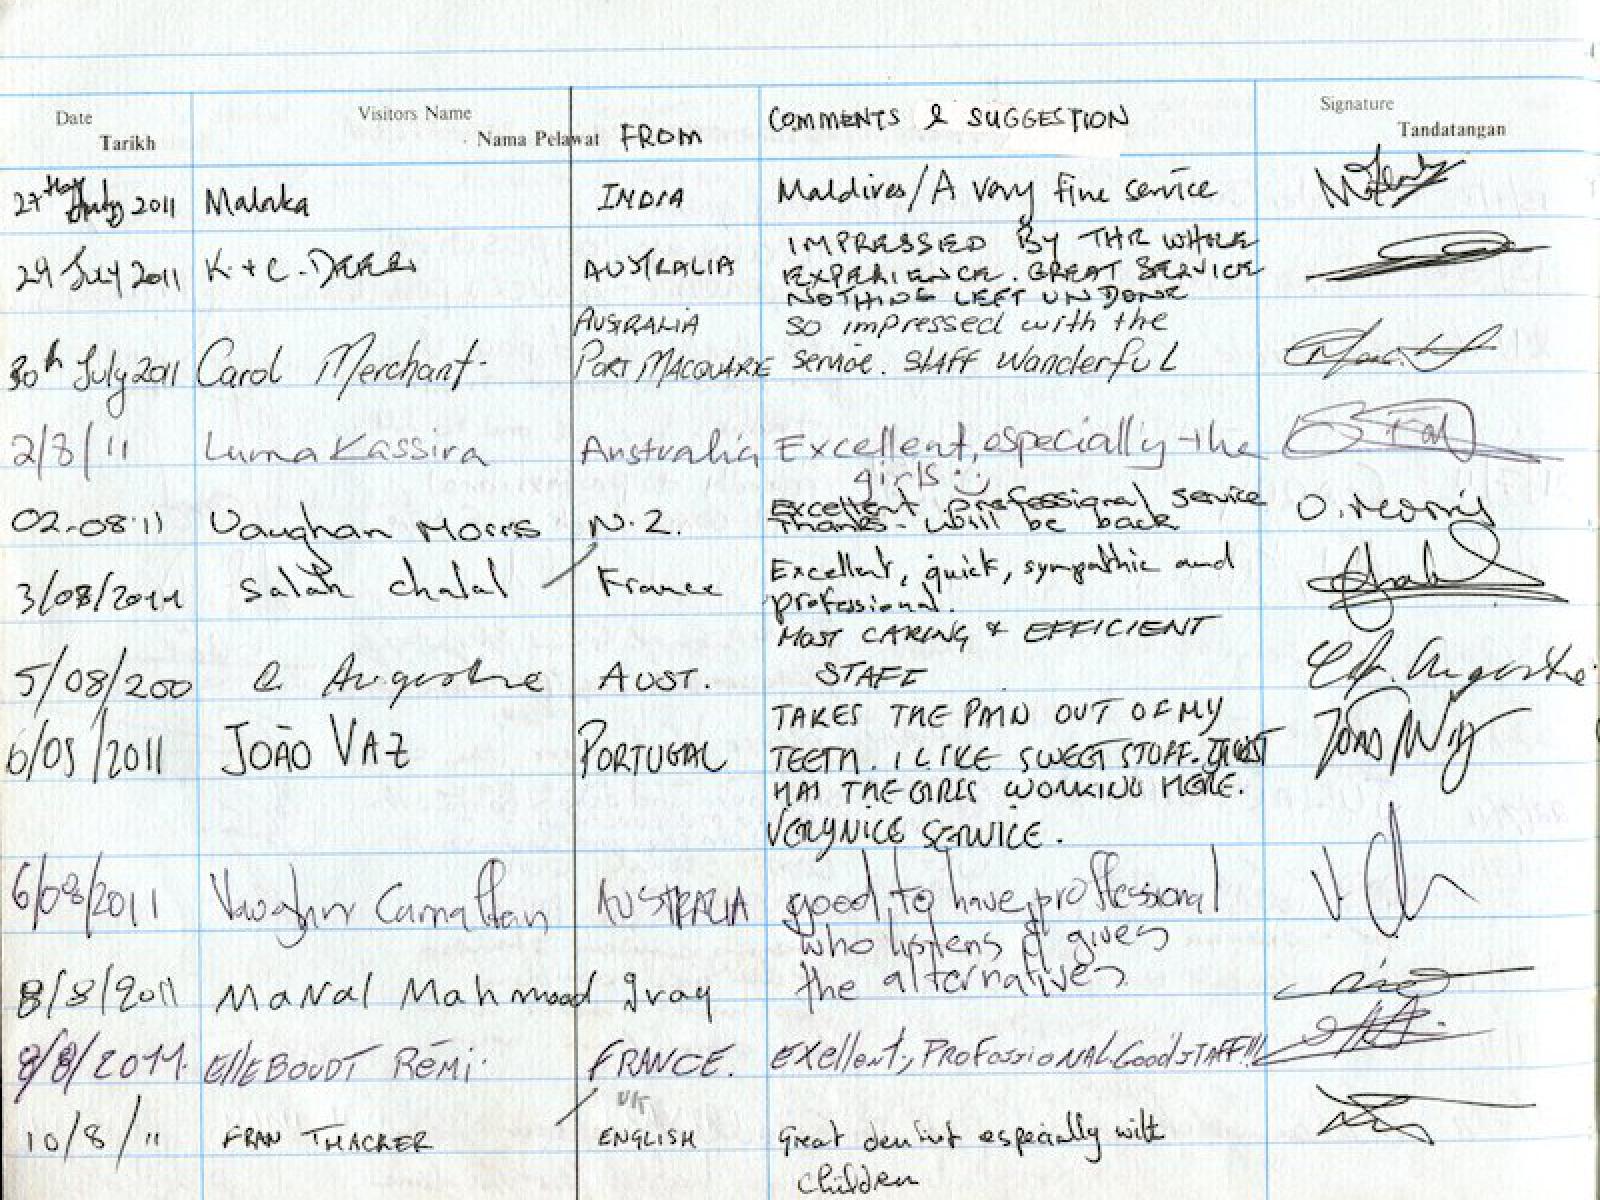 Date Visitors Name COMMENTS & SUGGESTION Signature
Tarikh Nama Pelawat FROM Tandatangan
27th July 2011 Malaka INDIA Maldives/A very fine service
IMPRESSED BY THE WHOLE
29 July 2011 K. + C. AUSTRALIA EXPERIENCE. GREAT SERVICE
NOTHING LEFT UNDONE
AUSTRALIA SO impressed with the
30th July 2011 Carol Merchant PORT MACQUARIE Service. STAFF Wonderful
2/8/11 Luma Kassira Australia Excellent, especially the
girls :)
Excellent professional service
02-08-11 Vaughan Morris N.Z. Thanks- will be back
Excellent, quick, sympathic and
3/08/2011 Salah Chalal France professional.
MOST CARING & EFFICIENT
5/08/200 C Augustine AUST. STAFF
TAKES THE PAIN OUT OF MY
6/05/2011 JOÃO VAZ PORTUGAL TEETH. I LIKE SWEET STUFF. JUST
HAS THE GIRLS WORKING HERE.
VERY NICE SERVICE.
6/08/2011 AUSTRALIA good to have proffessional
who listens & gives
8/8/2011 Manal Mahmood Iraq the alternatives
9/8/2011. ElleBOUDT Rémi. FRANCE. Exellent, PROFOSSIONAL. Good STAFF!!!
UK
10/8/11 FRAN THACKER ENGLISH Great dentist especially with
children